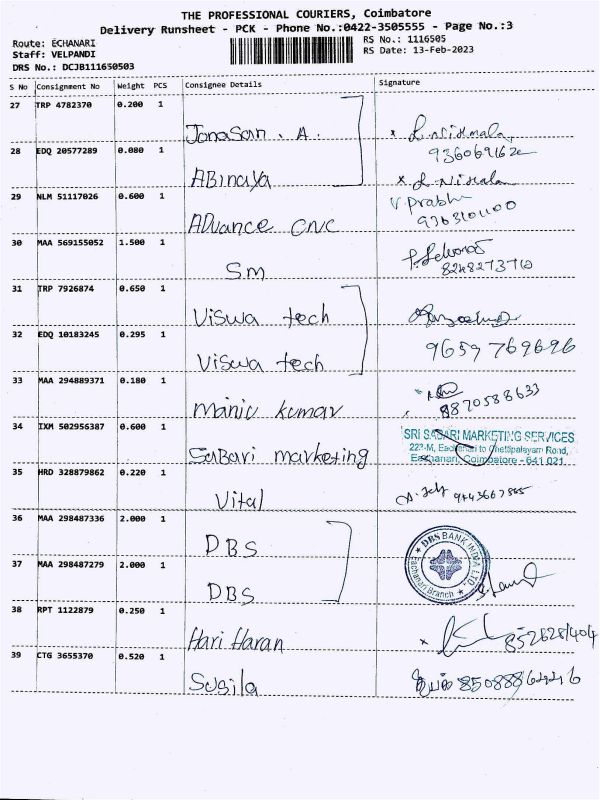 THE PROFESSIONAL COURIERS, Coimbatore
Delivery Runsheet - PCK - Phone No.:0422-3505555 - Page No.:3
Route: ECHANARI
Staff: VELPANDI
DRS No.: DCJB111650503
RS No.: 1116505
RS Date: 13-Feb-2023
S No Consignment No Weight PCS Consignee Details Signature
27 TRP 4782370 0.200 1
Janasan . A.
28 EDQ 20577289 0.080 1
ABinaya
29 NLM 51117026 0.600 1 V. Prabhu
ADvance CNC
30 MAA 569155052 1.500 1
SM 8248273710
31 TRP 7926874 0.650 1
Viswa tech
32 EDQ 10183245 0.295 1 9659769696
Viswa tech
33 MAA 294889371 0.180 1 8870588633
Maniv kumar
34 IXM 502956387 0.600 1 SRI SABARI MARKETING SERVICES
223-M, Eachanari to Chettipalayam Road,
Eachanari, Coimbatore - 641 021
SaBari marketing
35 HRD 328879862 0.220 1
Vital
36 MAA 298487336 2.000 1
DBS DBS BANK INDIA LTD.
37 MAA 298487279 2.000 1 Eachanari Branch
DBS
38 RPT 1122879 0.250 1
Hari Haran
39 CTG 3655370 0.520 1
Susila